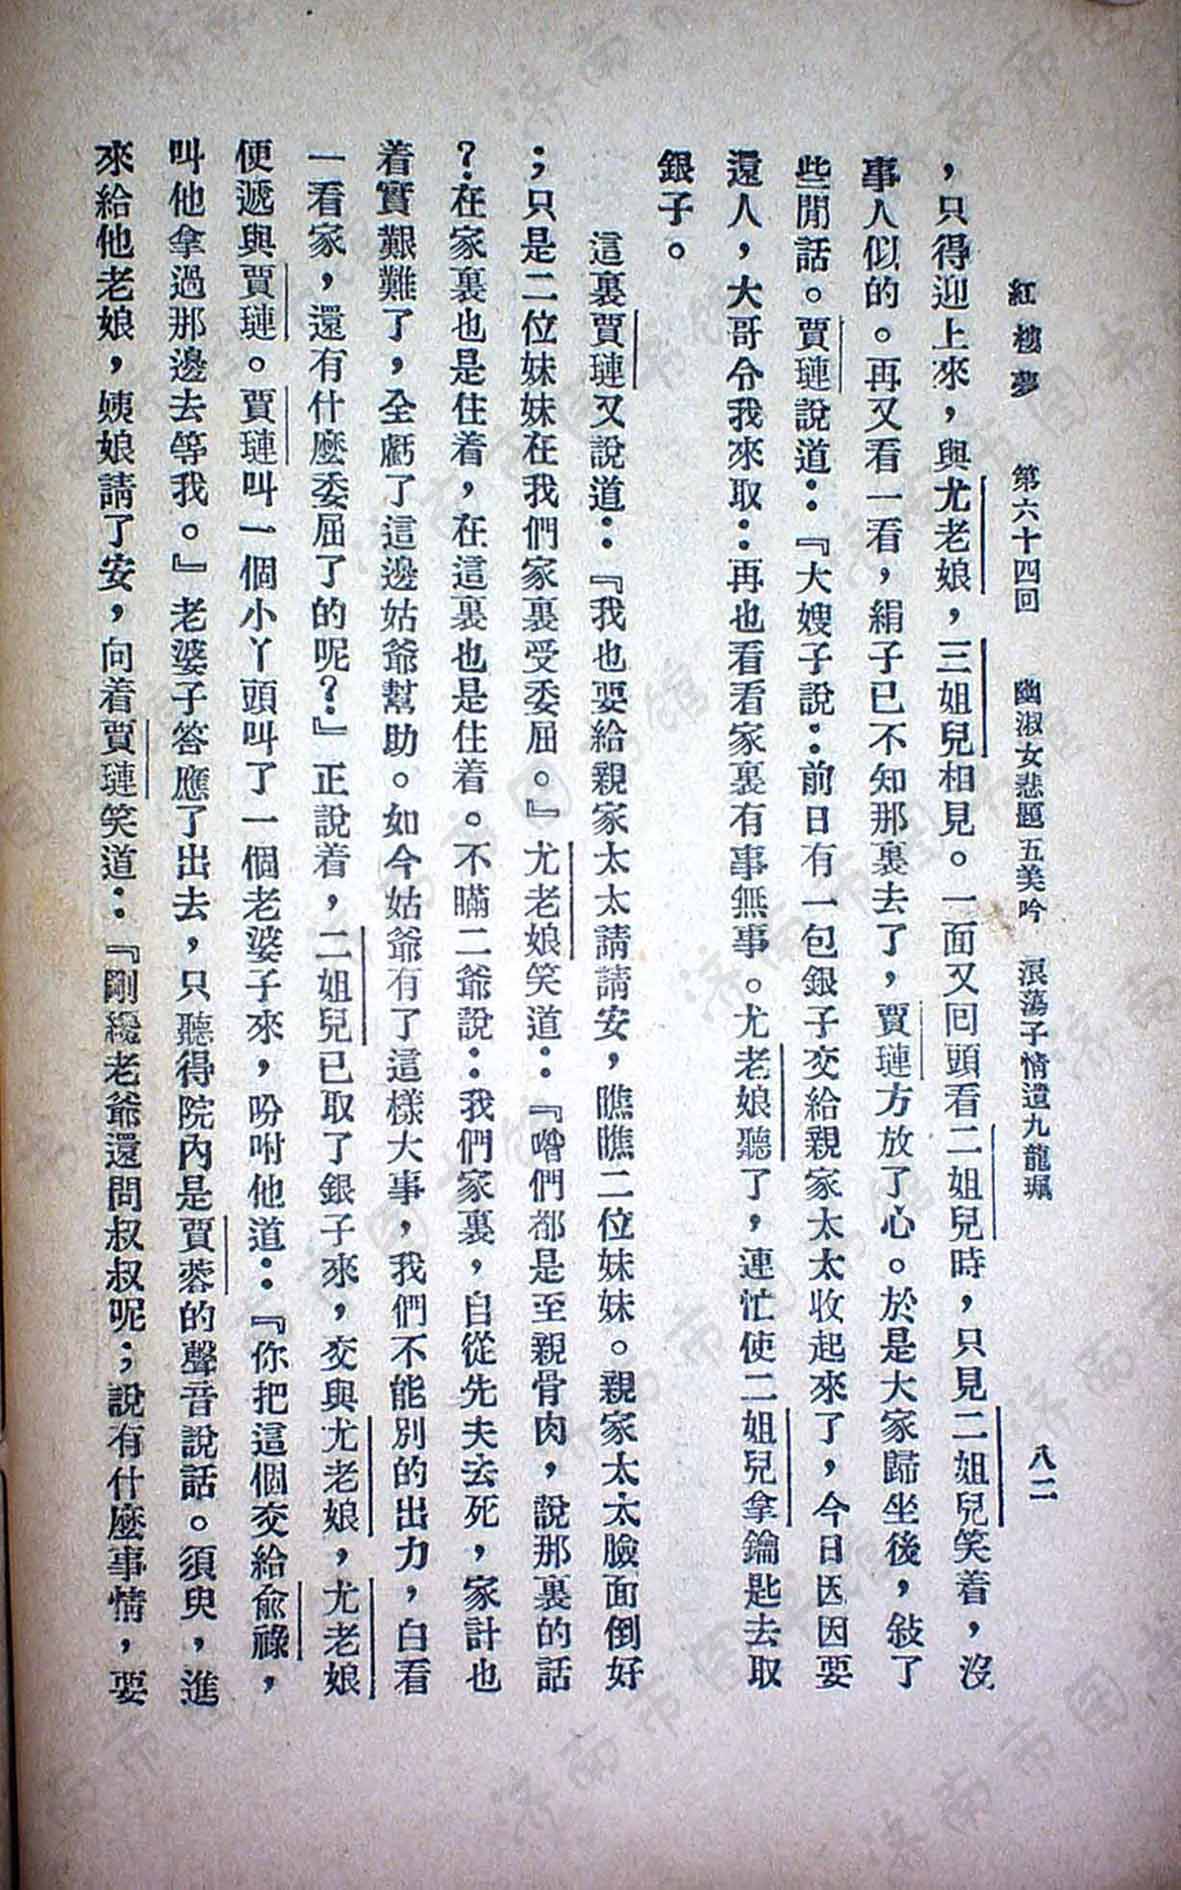 紅樓夢 第六十四回 幽淑女悲題五美吟 浪蕩子情遺九龍珮 八二
，只得迎上來，與尤老娘，三姐兒相見。一面又回頭看二姐兒時，只見二姐兒笑着，沒
事人似的。再又看一看，絹子已不知那裏去了，賈璉方放了心。於是大家歸坐後，敍了
些閒話。賈璉說道：『大嫂子說：前日有一包銀子交給親家太太收起來了，今日因因要
還人，大哥令我來取：再也看看家裏有事無事。尤老娘聽了，連忙使二姐兒拿鑰匙去取
銀子。
這裏賈璉又說道：『我也要給親家太太請請安，瞧瞧二位妹妹。親家太太臉面倒好
；只是二位妹妹在我們家裏受委屈。』尤老娘笑道：『噜們都是至親骨肉，說那裏的話
？在家裏也是住着，在這裏也是住着。不瞞二爺說：我們家裏，自從先夫去死，家計也
着實艱難了，全虧了這邊姑爺幫助。如今姑爺有了這樣大事，我們不能別的出力，白看
一看家，還有什麼委屈了的呢？』正說着，二姐兒已取了銀子來，交與尤老娘，尤老娘
便遞與賈璉。賈璉叫一個小丫頭叫了一個老婆子來，吩咐他道：『你把這個交給俞祿，
叫他拿過那邊去等我。』老婆子答應了出去，只聽得院內是賈蓉的聲音說話。須臾，進
來給他老娘，姨娘請了安，向着賈璉笑道：『剛纔老爺還問叔叔呢；說有什麼事情，要
濟南市图书馆